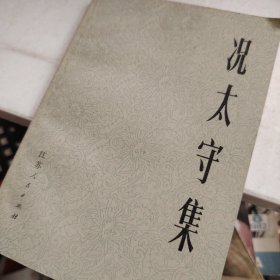 况太守集
江苏人民出版社